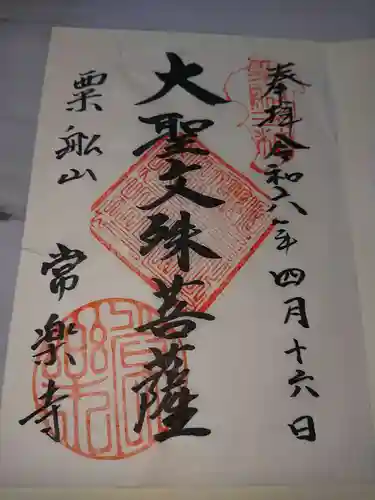 奉拝令和六年四月十六日
大聖文殊菩薩
粟船山
常楽寺